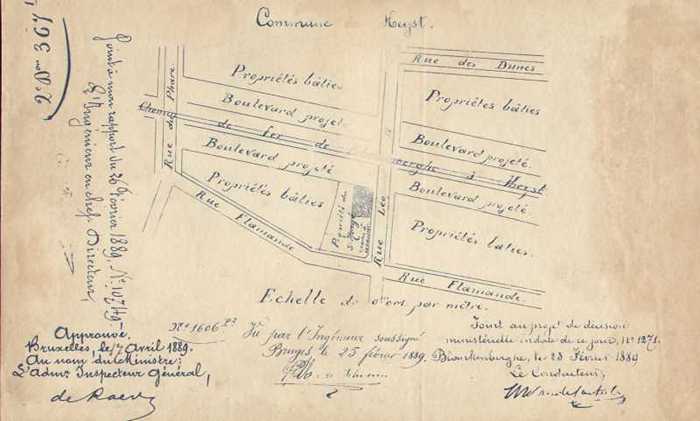 Commune Heyst.
2e Don 3671
Joint à mon rapport du 26 Février 1889 No
L'Ingénieur en chef Directeur,
Rue des Dunes
Rue du Phare
Propriétés bâties
Propriétés bâties
Boulevard projeté
Boulevard projeté.
Chemin de fer de berghe à Heyst
Boulevard projeté
Boulevard projeté
Propriétés bâties
Propriété de
Rue Léo
Propriétés baties.
Rue Flamande
Rue Flamande.
Echelle de par mètre.
Approuvé.
Bruxelles, le 7 Avril 1889.
Au nom du Ministre:
L'admr Inspecteur Général,
de Raeve
No 1606
Vu par l'Ingénieur soussigné
Bruges le 25 février 1889.
Joint au projet de décision
ministérielle in date de ce jour, No 1271.
Blankenberghe, le 23 Février 1889
Le Conducteur,